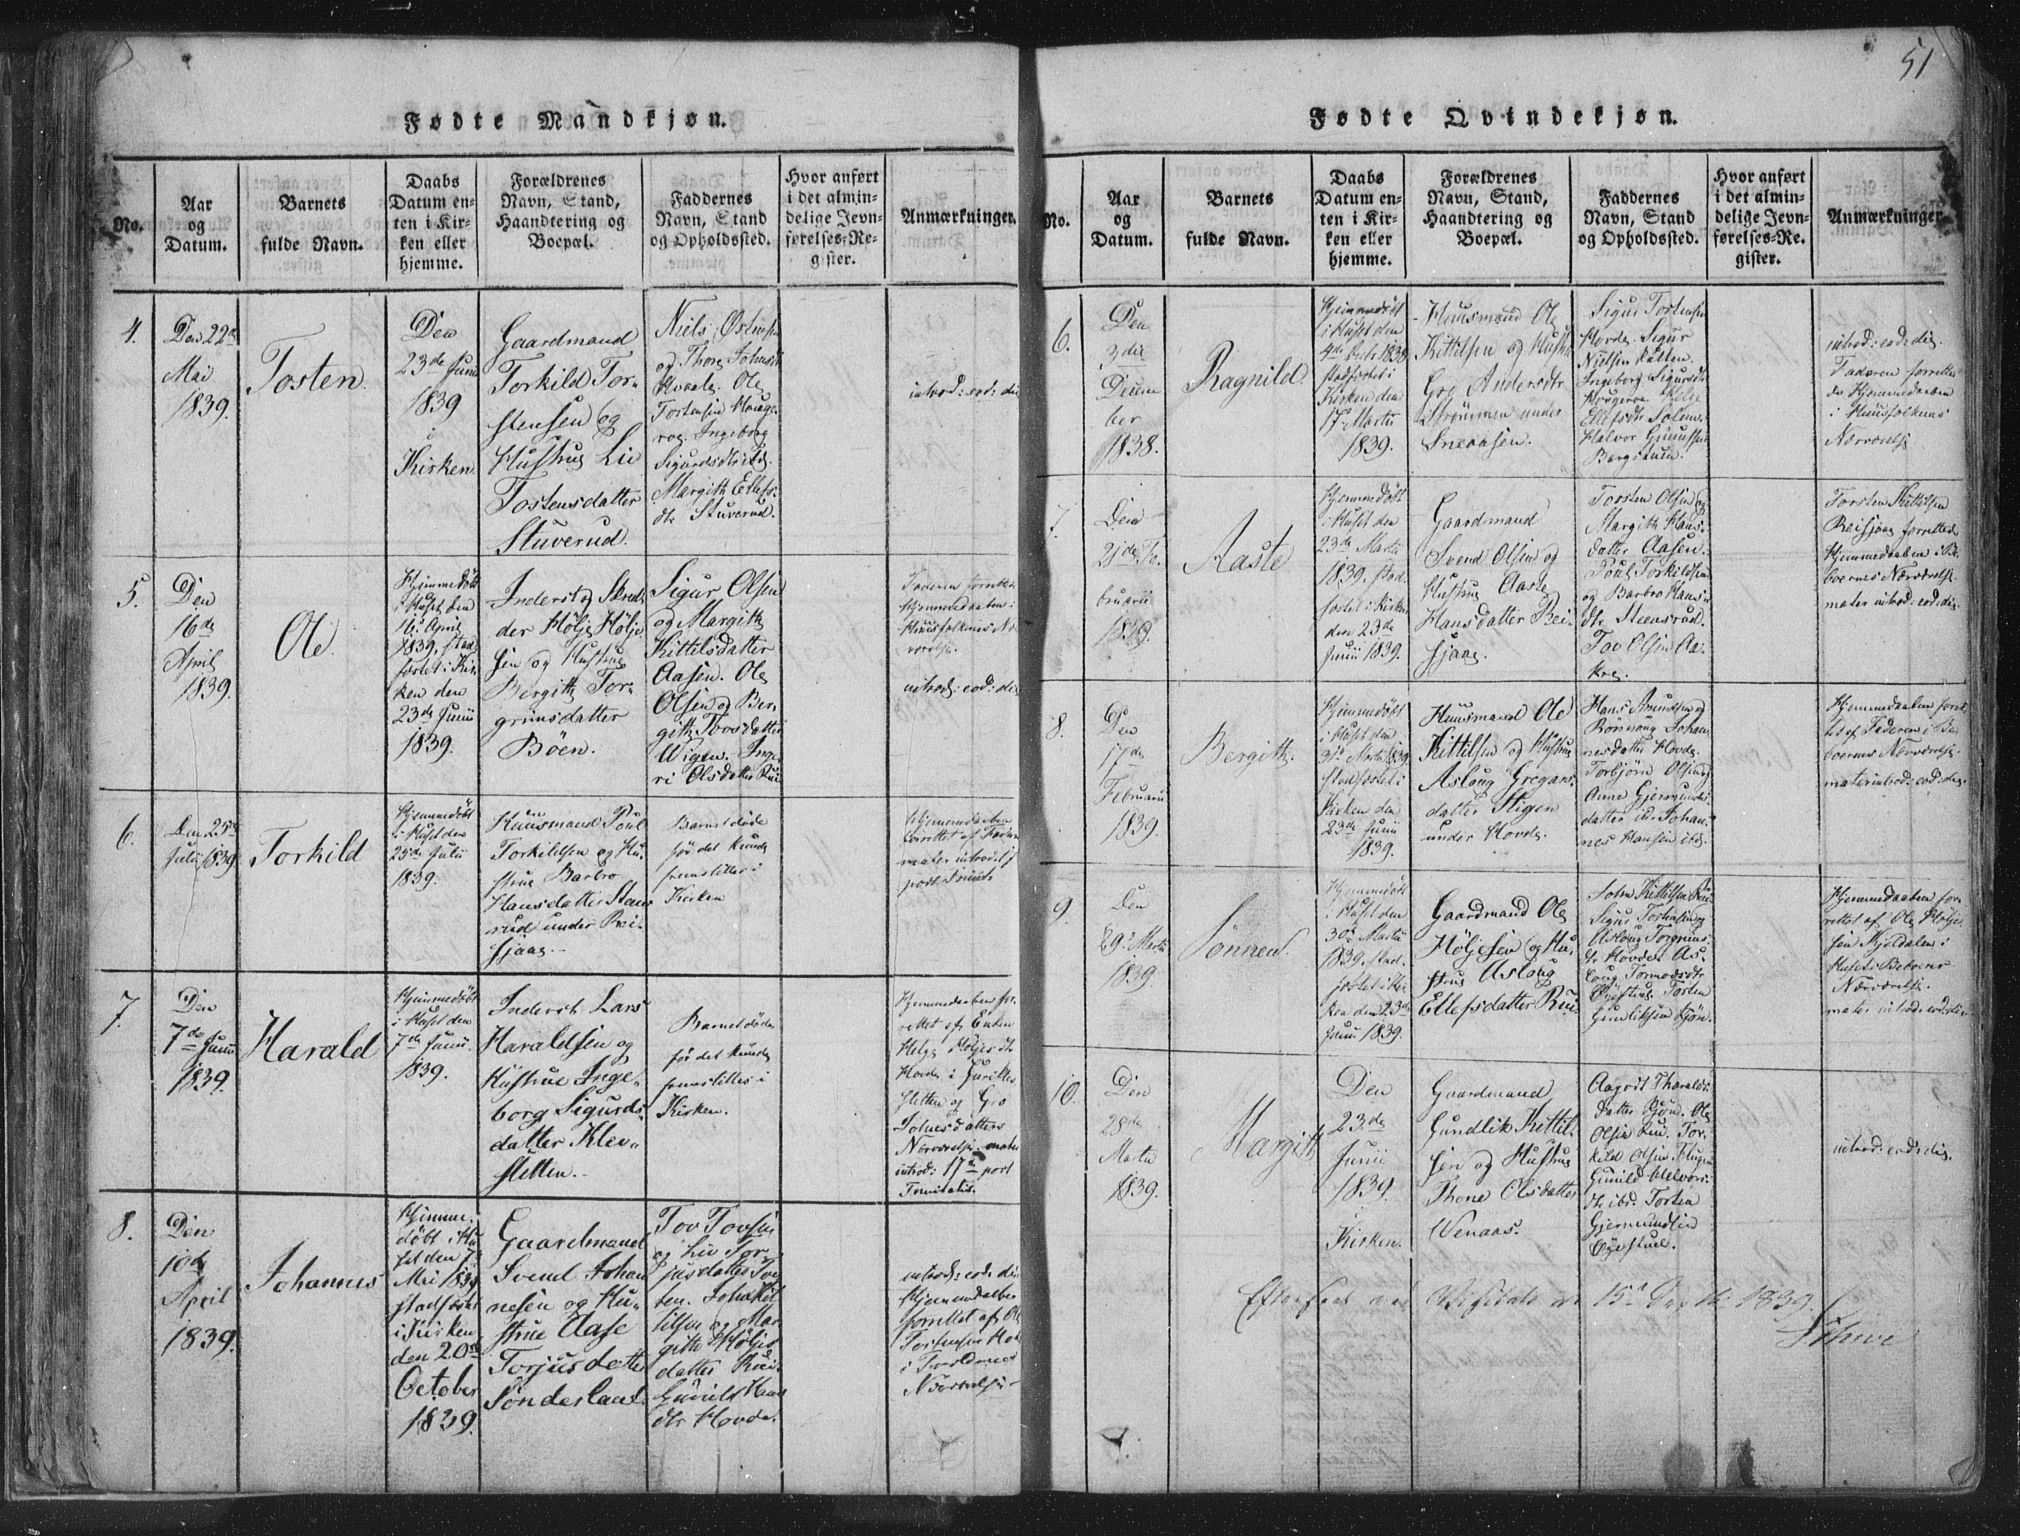 51
Fødte Mandkjøn.
No.
Aar
og
Datum.
Barnets
fulde Navn.
Daabs
Datum en-
ten i Kir-
ken eller
hjemme.
Forældrenes
Navn, Stand,
Haandtering og
Boepæl.
Faddernes
Navn, Stand
og Opholdssted.
Hvor anført
i det almin-
delige Jevn-
førelses-Re-
gister.
Anmærkninger.
4.
Den 22de
Mai
1839.
Tosten.
Den
23de Junii
1839
i
Kirken
Gaardmand
Torkild Tor-
stensen og
Hustrue Liv
Tostensdatter
Stuverud.
Niels Østensen
og Thore Johnsdtr
Kvaale. Ole
Tostensen Houge-
roe. Ingeborg
Sigurdsdtr ibid.
Margith Ellefs-
dtr Stuverud.
introd: eod: die
5.
Den
16de
April
1839.
Ole
Hjemmedöbt
i Huset den
16. April
1839, stad-
fæstet i Kir-
ken den
23de Junii
1839.
Inderst og Skræd-
der Hölje Hölje-
sen og Hustrue
Bergith Tor-
grimsdatter
Böen.
Sigur Olsen
og Margith
Kittilsdatter
Aasen. Ole
Olsen og Ber-
gith Tovsdatter
Wigen. Inge-
ri Olsdatter Rui
Faderen forrettede
Hjemmedaaben i
Huusfolkenes Nær-
værelse.
introd: eod: die
6.
Den 25de
Julii 1839.
Torkild
Hjemmedöbt
i Huset den
25de Julii
1839.
Huusmand Poul
Torkildsen og Hu-
strue Barbro
Hansdatter Stens-
rud under Rei-
sjaag.
Barnet döde
för det kunde
fremstilles i
Kirken
Hjemmedaaben
forrettet af Faderen
mater introd:
post
7.
Den
7de Junii
1839.
Harald
Hjemmedöbt
i Huset den
7de Junii
1839.
Inderst Lars
Haraldsen og
Hustrue Inge-
borg Sigurds-
datter Klev-
sletten.
Barnet döde
för det kunde
fremstilles i
Kirken.
Hjemmedaaben for-
rettet af Enken
Helge Höljesdtr
Hovde i
sletten og Gro
datters
Nærværelse. mater
introd: 17de post
Trinitatis.
8.
Den
10de
April
1839.
Johannes
Hjemme-
döbt i Hu-
set den 7de
Mai 1839
stadfæstet
i Kirken
den 20de
October
1839.
Gaardmand
Svend Johan-
nesen og Hu-
strue Aase
Torjusdatter
Sönderland.
Tov Tovsen
og Liv Tor-
jusdatter
John Kit-
tilsen og Mar-
gith Höljes-
datter Rui.
Gunild Hans-
dtr Hovde.
introd: eod: die
Hjemmedaaben
forrettet af Ole
Tostensen
i Forældrenes
Nærværelse
Fødte Qvindekjøn.
No.
Aar
og
Datum.
Barnets
fulde Navn.
Daabs
Datum en-
ten i Kir-
ken eller
hjemme.
Forældrenes
Navn, Stand,
Haandtering og
Boepæl.
Faddernes
Navn, Stand
og Opholdssted.
Hvor anført
i det almin-
delige Jevn-
førelses-Re-
gister.
Anmærkninger
6.
Den
3die
Decem
ber
1838.
Ragnild
Hjemmedöbt
i Huset den
4de Feb. 1839
stadfæstet i
Kirken den
17de Martii
1839.
Huusmand Ole
Kittilsen og Hustrue
Gro Andersdtr
Strömmen under
Sneaasen.
Sigur Tostensen
Hovde. Sigur
Nielsen
Ingeborg Sigursdtr
Hougeroe. Helge
Ellefsdtr
Halvor Gunulfsen
Bergstuen.
introd: eod: die.
Faderen forrettede
Hjemmedaaben
i Huusfolkenes
Nærværelse
7.
Den
21de Fe-
bruarii
1839.
Aaste
Hjemmedöbt
i Huset den
23de Martii
1839. stad-
fæstet i Kirken
den 23de
Junii 1839.
Gaardmand
Svend Olsen og
Hustrue Aase
Hansdatter Rei-
sjaag.
Torsten Olsen og
Margith Hans-
datter Aasen.
Poul Torkildsen
og Barbro Hans-
dtr Steensrud.
Tov Olsen Aa-
kre.
Torsten Kittilsen
Reisjaag forrettede
Hjemmedaaben i Be-
boernes Nærværelse
mater introd: eod: die
8.
Den
17de
Februarii
1839.
Bergith
Hjemmedöbt
i Huset den
31te Martii 1839
stadfæstet i
Kirken den
23de Junii
1839.
Huusmand Ole
Kittilsen og Hustrue
Asloug Gregars-
datter Stigen
under Hovde.
Hans Amundsen og
Rönnoug Johan-
nesdatter Hovde.
Torbjörn Olsen og
Anne Gjermunds-
datter ibid. Johan-
nes Hansen ibid.
Hjemmedaaben forret-
tet af Faderen i Be-
boernes Nærværelse.
mater introd: eod: die.
9.
Den
9de Martii
1839.
Sönnev
Hjemmedöbt
i Huset den
30te Martii
1839. stad-
fæstet i Kir-
ken den 23de
Junii 1839.
Gaardmand Ole
Höljesen og Hu-
strue Asloug
Ellefsdatter Rui
John Kittilsen Rui
Sigur Tostensen og
Asloug Torgrims-
dtr Hovde. As-
loug Tormodsdtr
Öyestue. Tosten
Gundliksen Bjön.
Hjemmedaaben for-
rettet af Ole Hölje-
sen Hjeldalen i
Husets Beboeres
Nærværelse.
mater introd: eod: die.
10.
Den
28de
Martii
1839.
Margith
Den
23de
Junii
1839.
i
Kirken
Gaardmand
Gundlik Kittil-
sen og Hustrue
Thone Olsdatter
Wenaas.
Aagot Tharalds-
datter Bjön. Ole
Olsen Rui. Tor-
kild Olsen
Gunild Halvors-
dtr ibid. Torsten
Gjermundsen
Öyestuel.
introd: eod: die.
Efterseet ved Visitats 15de 1839.